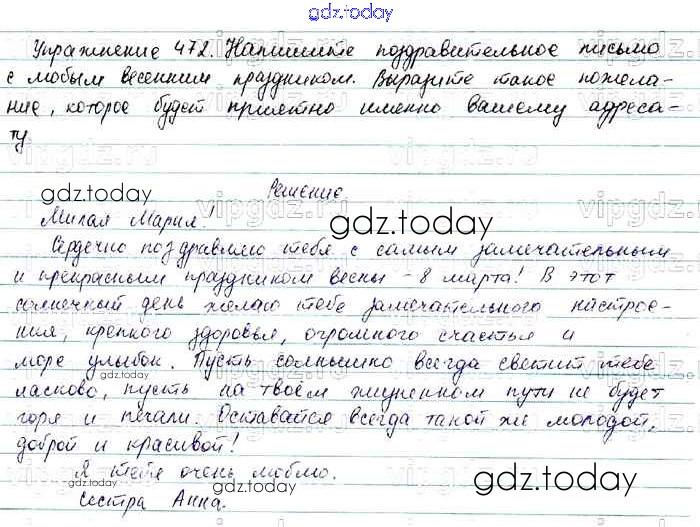 gdz.today
Упражнение 472. Напишите поздравительное письмо
с любым весенним праздником. Выразите такое пожела-
ние, которое будет приятно именно вашему адреса-
ту.
vipgdz.ru
Решение.
gdz.today
Милая Мария!
gdz.today
Сердечно поздравляю тебя с самым замечательным
и прекрасным праздником весны - 8 марта! В этот
солнечный день желаю тебе замечательного настрое-
ния, крепкого здоровья, огромного счастья и
море улыбок. Пусть солнышко всегда светит тебе
gdz.today
ласково, пусть на твоём жизненном пути не будет
горя и печали. Оставайся всегда такой же молодой,
доброй и красивой!
Я тебя очень люблю.
gdz.today
gdz.today
Сестра Анна.